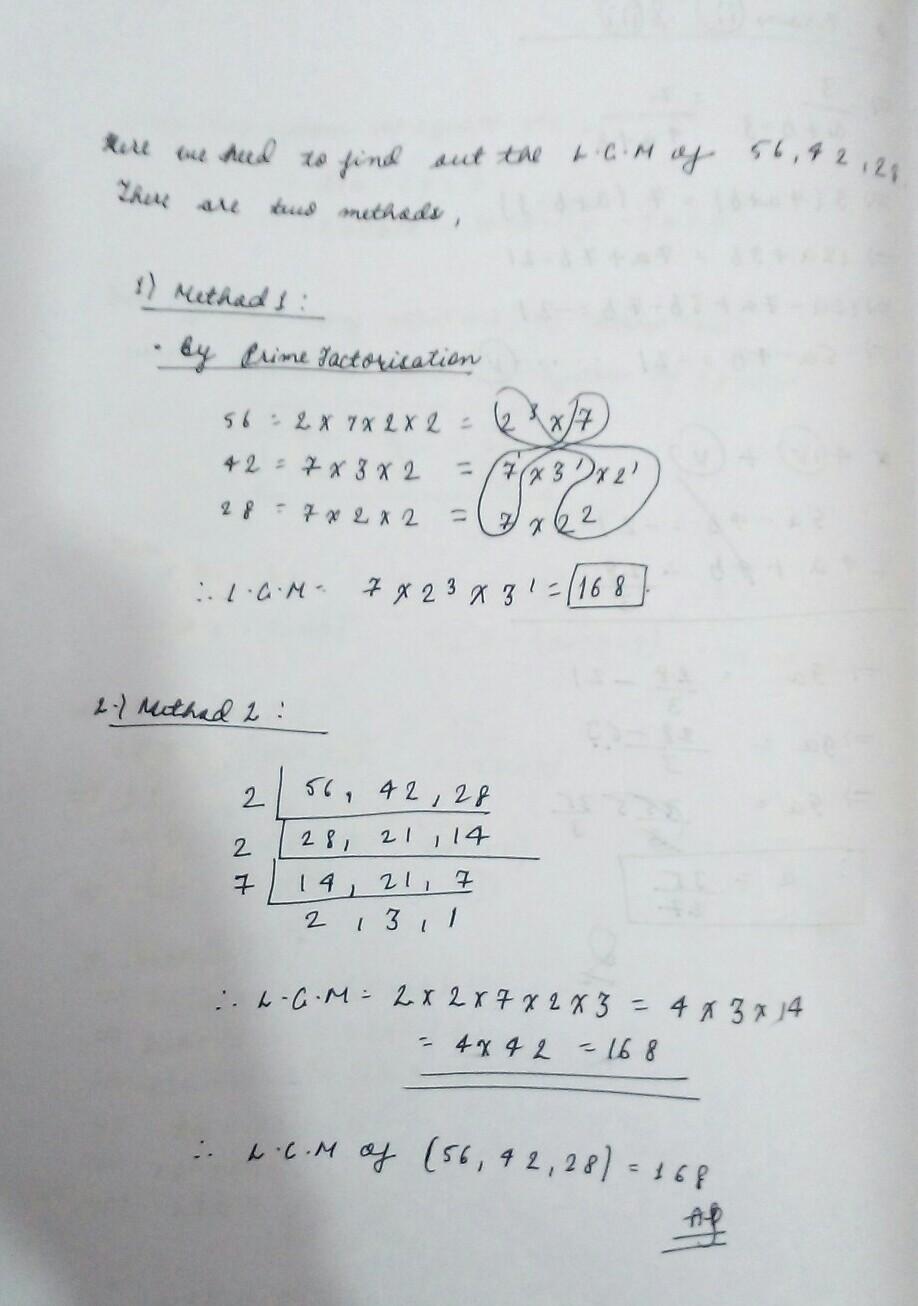 Here we need to find out the L.C.M of 56, 42, 28.
There are two methods,
1) Method 1:
• By Prime Factorisation
56 = 2 x 7 x 2 x 2 = 2³ x 7
42 = 7 x 3 x 2 = 7¹ x 3¹ x 2¹
28 = 7 x 2 x 2 = 7 x 2²
∴ L.C.M = 7 x 2³ x 3¹ = 168.
2.) Method 2:
2 | 56, 42, 28
2 | 28, 21, 14
7 | 14, 21, 7
2, 3, 1
∴ L.C.M = 2 x 2 x 7 x 2 x 3 = 4 x 3 x 14
= 4 x 42 = 168
∴ L.C.M of (56, 42, 28) = 168